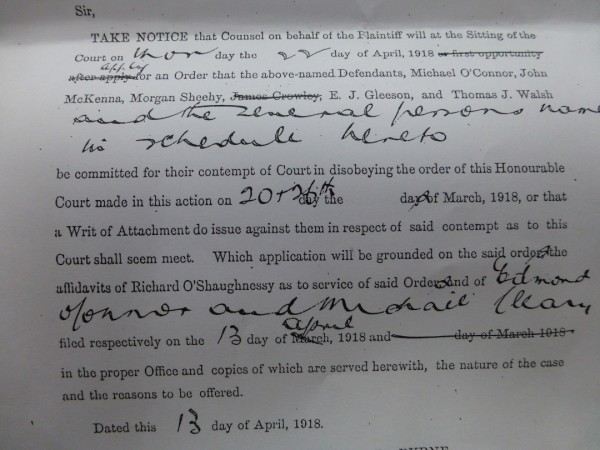 Sir,
TAKE NOTICE that Counsel on behalf of the Plaintiff will at the Sitting of the
Court on day the 22 day of April, 1918 or first opportunity
apply
after apply for an Order that the above-named Defendants, Michael O'Connor, John
McKenna, Morgan Sheehy, James Crowley, E. J. Gleeson, and Thomas J. Walsh
and the several persons named
in schedule hereto
be committed for their contempt of Court in disobeying the order of this Honourable
Court made in this action on 20 day the day of March, 1918, or that
a Writ of Attachment do issue against them in respect of said contempt as to this
Court shall seem meet. Which application will be grounded on the said orders the
affidavits of Richard O'Shaughnessy as to service of said Orders and of Edmond
O'Connor and Michael Cleary
April
filed respectively on the 13 day of March, 1918 and day of March 1918
in the proper Office and copies of which are served herewith, the nature of the case
and the reasons to be offered.
Dated this 13 day of April, 1918.